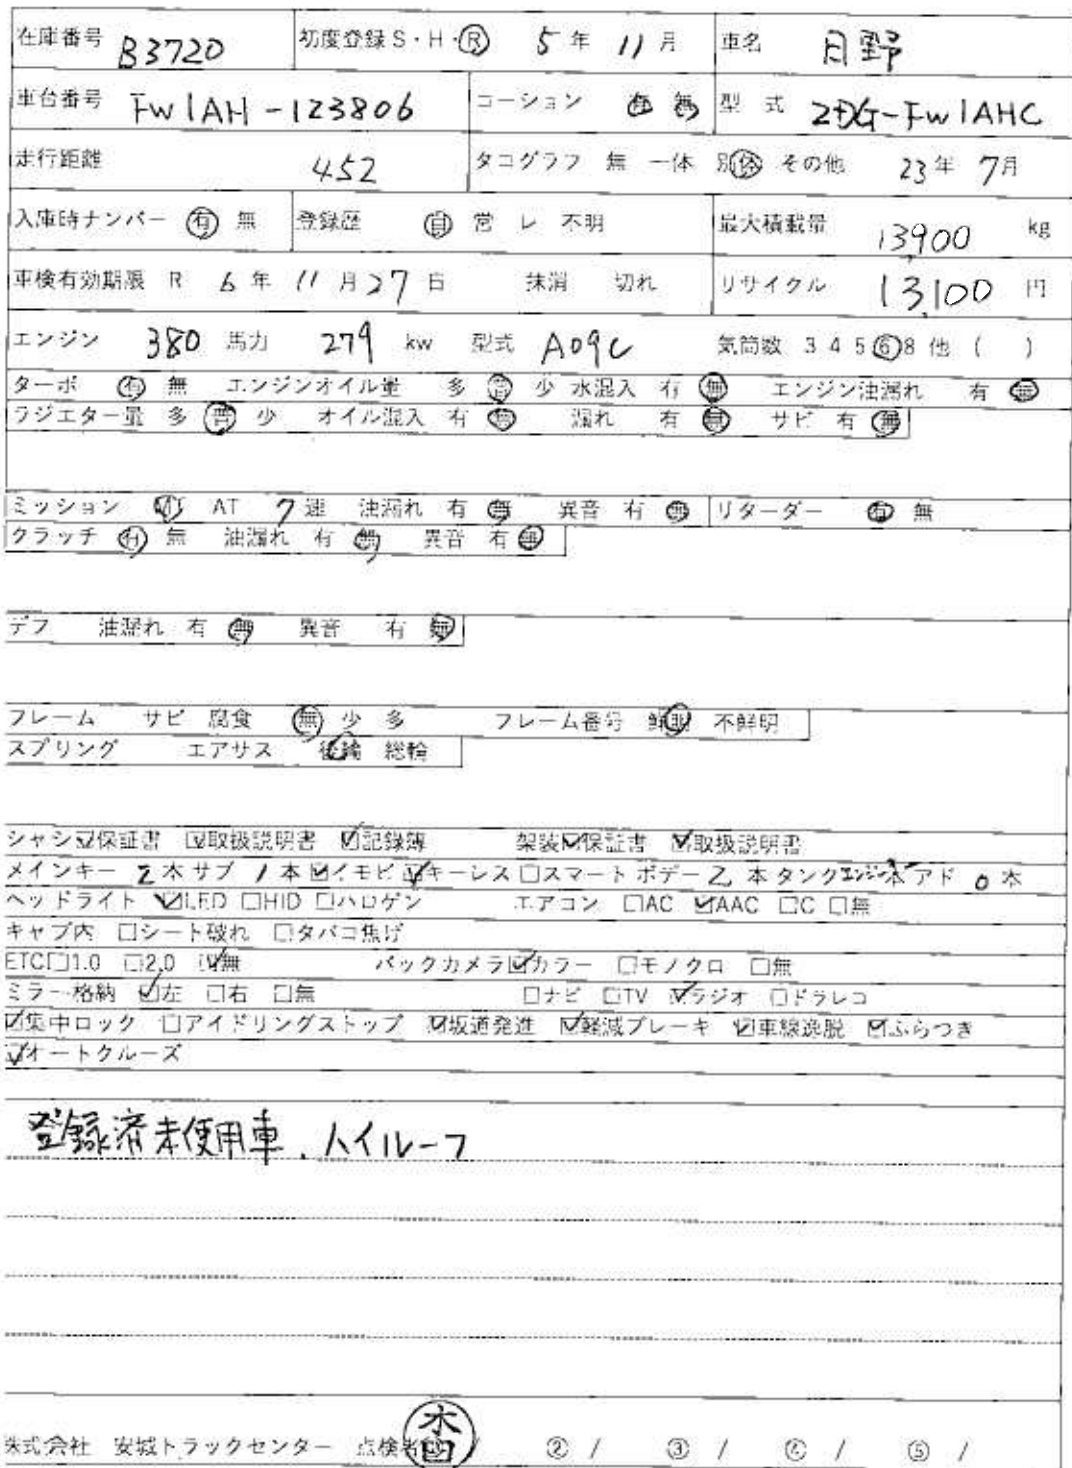 在庫番号 B3720 初度登録 S・H・Ⓡ 5 年 11 月 車名 日野
車台番号 FW1AH-123806 コーション 有 無 型 式 2DG-FW1AHC
走行距離 452 タコグラフ 無 一体 別体 その他 23 年 7 月
入庫時ナンバー 有 無 登録歴 自 営 レ 不明 最大積載量 13,900 kg
車検有効期限 R 6 年 11 月 27 日 抹消 切れ リサイクル 13,100 円
エンジン 380 馬力 279 kw 型式 A09C 気筒数 3 4 5 ⑥ 8 他 ( )
ターボ 有 無 エンジンオイル量 多 普 少 水混入 有 無 エンジン油漏れ 有 無
ラジエター量 多 普 少 オイル混入 有 無 漏れ 有 無 サビ 有 無
ミッション MT AT 7 速 油漏れ 有 無 異音 有 無 リターダー 有 無
クラッチ 有 無 油漏れ 有 無 異音 有 無
デフ 油漏れ 有 無 異音 有 無
フレーム サビ 腐食 無 少 多 フレーム番号 鮮明 不鮮明
スプリング エアサス 後輪 総輪
シャシ ☑保証書 ☑取扱説明書 ☑記録簿 架装 ☑保証書 ☑取扱説明書
メインキー 2 本 サブ 1 本 ☑イモビ ☑キーレス □スマート ボデー 2 本 タンク エンジン 本 アド 0 本
ヘッドライト ☑LED □HID □ハロゲン エアコン □AC ☑AAC □C □無
キャブ内 □シート破れ □タバコ焦げ
ETC □1.0 □2.0 ☑無 バックカメラ ☑カラー □モノクロ □無
ミラー格納 ☑左 □右 □無 □ナビ □TV ☑ラジオ □ドラレコ
☑集中ロック □アイドリングストップ ☑坂道発進 ☑軽減ブレーキ ☑車線逸脱 ☑ふらつき
☑オートクルーズ
登録済未使用車、ハイルーフ
株式会社 安城トラックセンター 点検者 / ② / ③ / ④ / ⑤ /